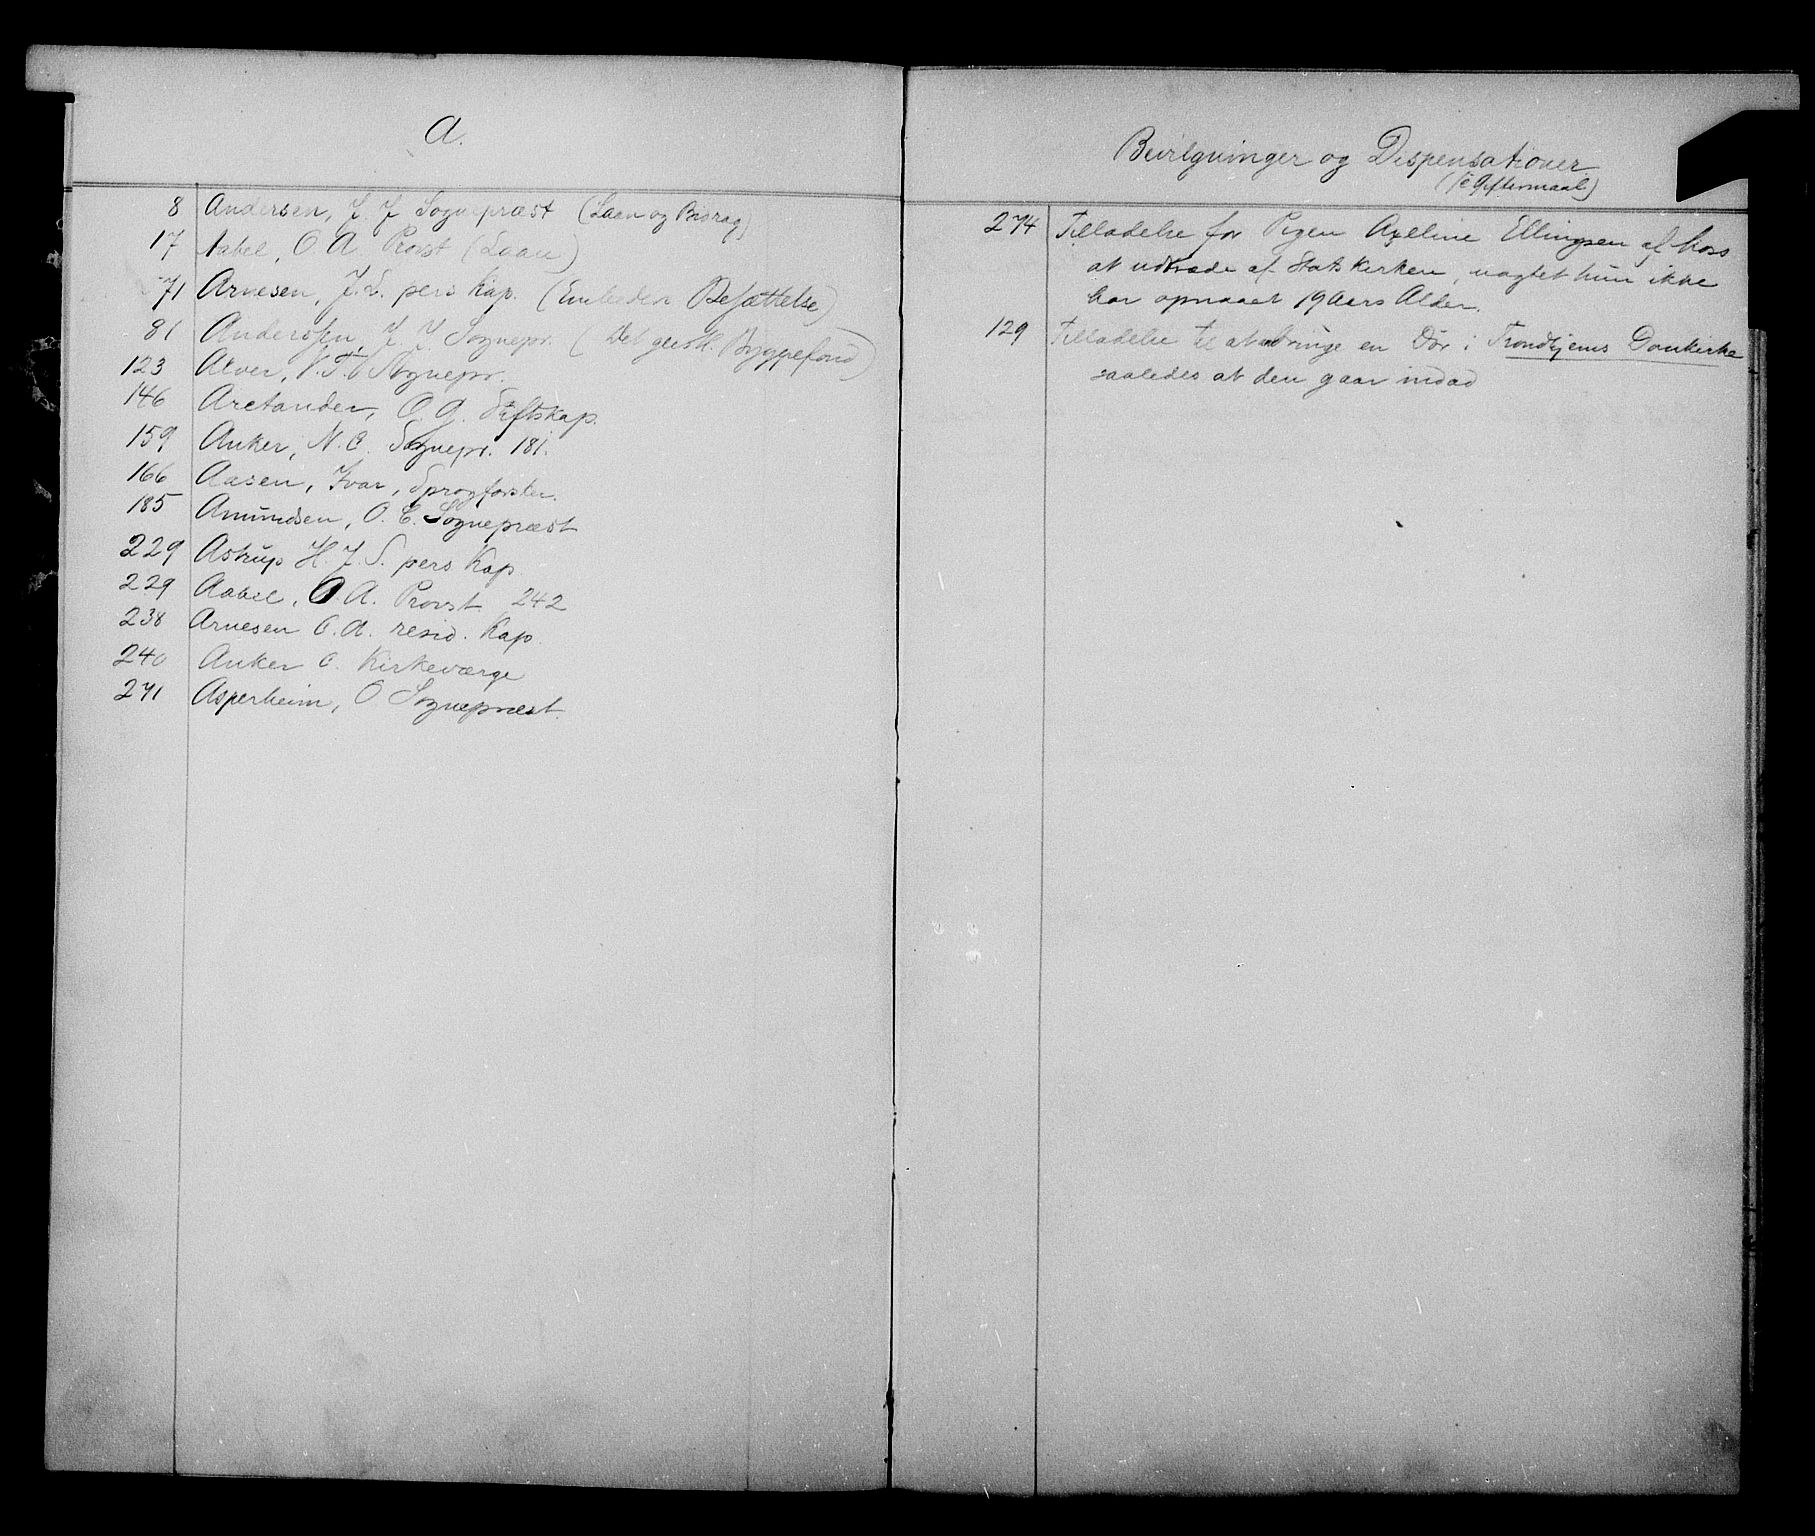 A.
8 Andersen, J. J Sognepræst (Laan og Bidrag)
17 Aabel, O. A Provst (Laan)
71 Arnesen, J. L. pers Kap. (Embeders Besættelse)
81 Anderssen, J. J. Sognepr. (Det geistl. Byggefond)
123 Alver, Sognepr.
146 Arctander, O. G. Stiftskap.
159 Anker, N. C. Sognepr. 181.
166 Aasen, Ivar, Sprogforsker.
185 Amundsen, O. C. Sognepræst
229 Astrup H. J. S. pers Kap
229 Aabel, O. A. Provst. 242
238 Arnesen O. A. resid. Kap.
240 Anker C. Kirkeværge
271 Asperheim, O Sognepræst.
Bevilgninger og Dispensationer
(÷ Giftermaal)
274 Tilladelse for Pigen Axeline Ellingsen af Moss
at udtræde af Statskirken, uagtet hun ikke
har opnaaet 19 Aars Alder.
129 Tilladelse til at anbringe en Dör i Trondhjems Domkirke
saaledes at den gaar indad